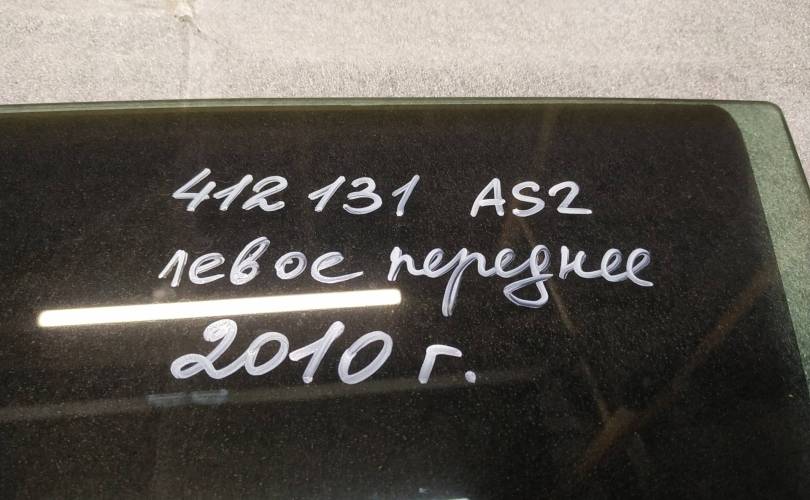 412 131 AS2
левое переднее
2010 г.